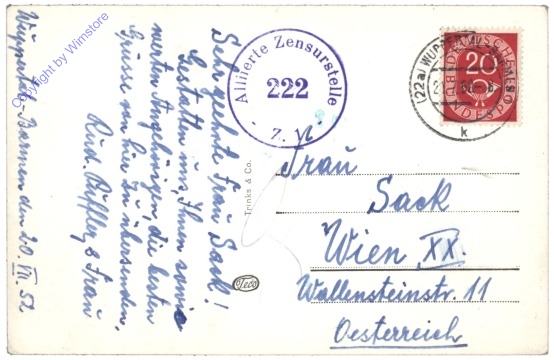 Wuppertal-Barmen den 20. VI. 52
Sehr geehrte Frau Sack!
Gestatten uns, Ihnen sowie
werten Angehörigen, die besten
Grüsse von hier zu übersenden,
Rud. & Frau
Alliierte Zensurstelle
222
- Z. N -
(22a) WUPPERTAL-BARMEN
k
DEUTSCHE
BUNDESPOST
20
Frau
Sack
Wien XX.
Wallensteinstr. 11
Oesterreich
Trinks & Co.
Teco
Copyright by Wimstore